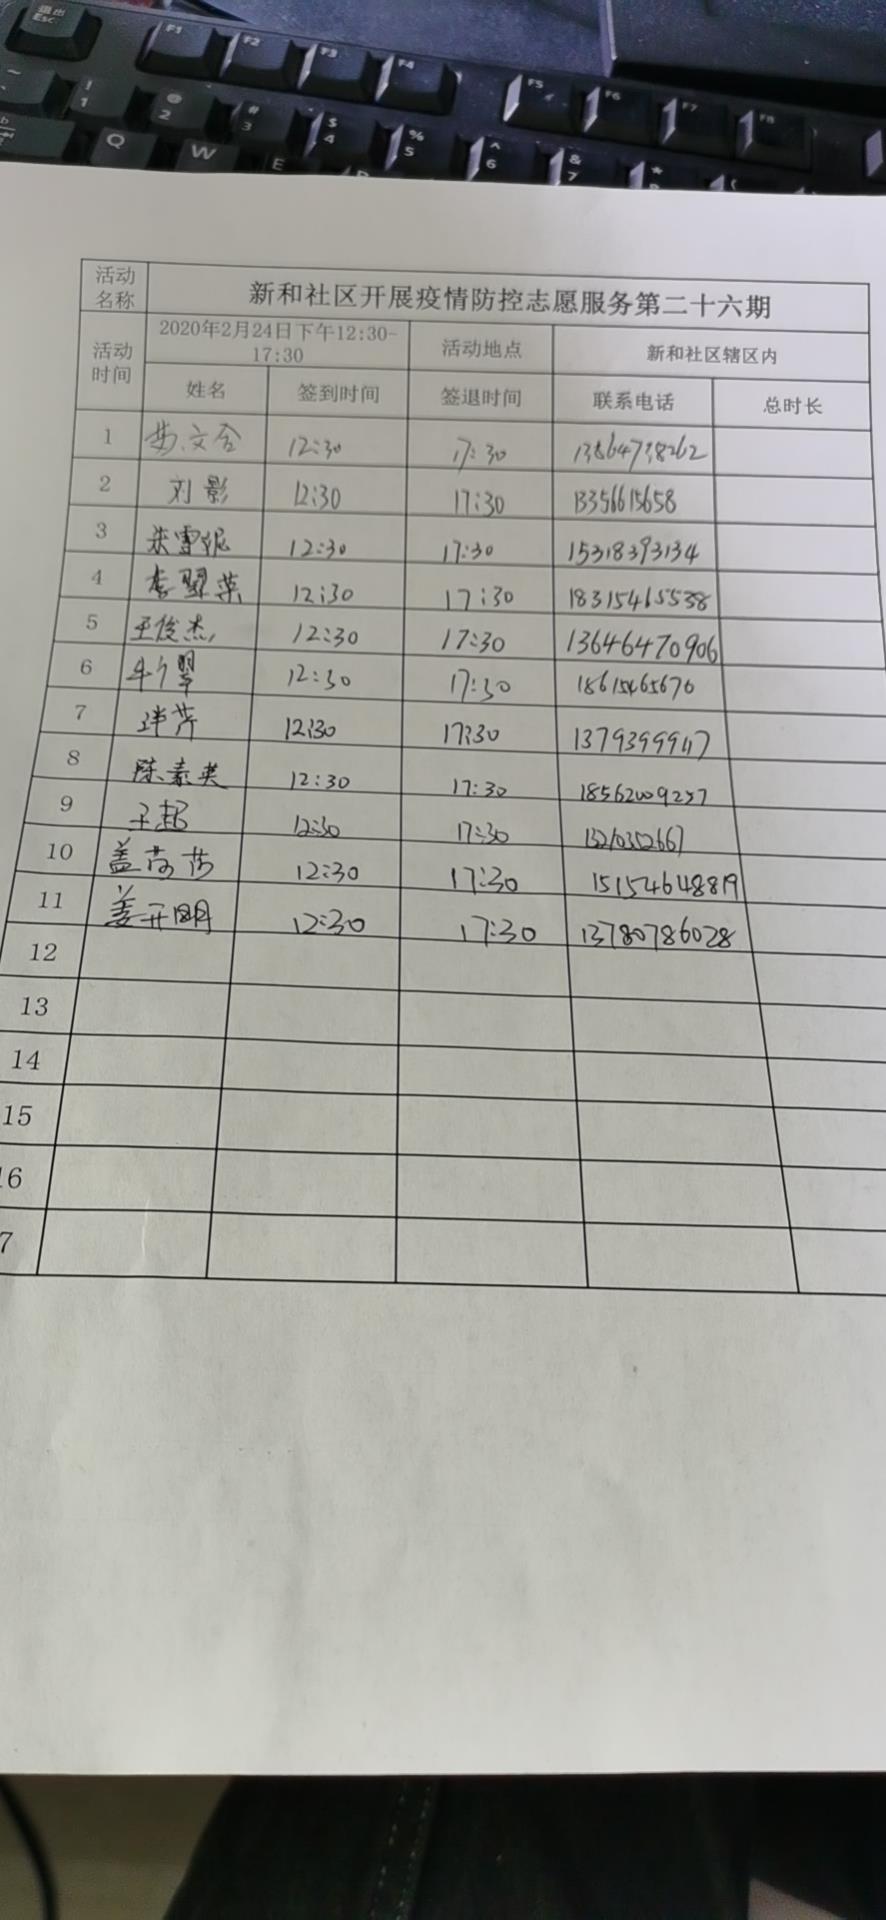 退出
Esc
F1 F2 F3 F4 F5 F6 F7 F8
! 1 @ 2 # 3 $ 4 % 5 ^ 6 & 7 *
Q W E
活动名称 新和社区开展疫情防控志愿服务第二十六期
活动时间 2020年2月24日下午12:30-17:30 活动地点 新和社区辖区内
姓名 签到时间 签退时间 联系电话 总时长
1 12:30 17:30 13864738262
2 刘影 12:30 17:30 13356615658
3 朱雪妮 12:30 17:30 15318393134
4 李翠荣 12:30 17:30 18315465538
5 王俊杰 12:30 17:30 13646470906
6 12:30 17:30 18615465670
7 12:30 17:30 13793999947
8 陈素英 12:30 17:30 18562009237
9 王超 12:30 17:30 13210352667
10 盖莎 12:30 17:30 15154648819
11 姜开明 12:30 17:30 13780786028
12
13
14
15
16
7